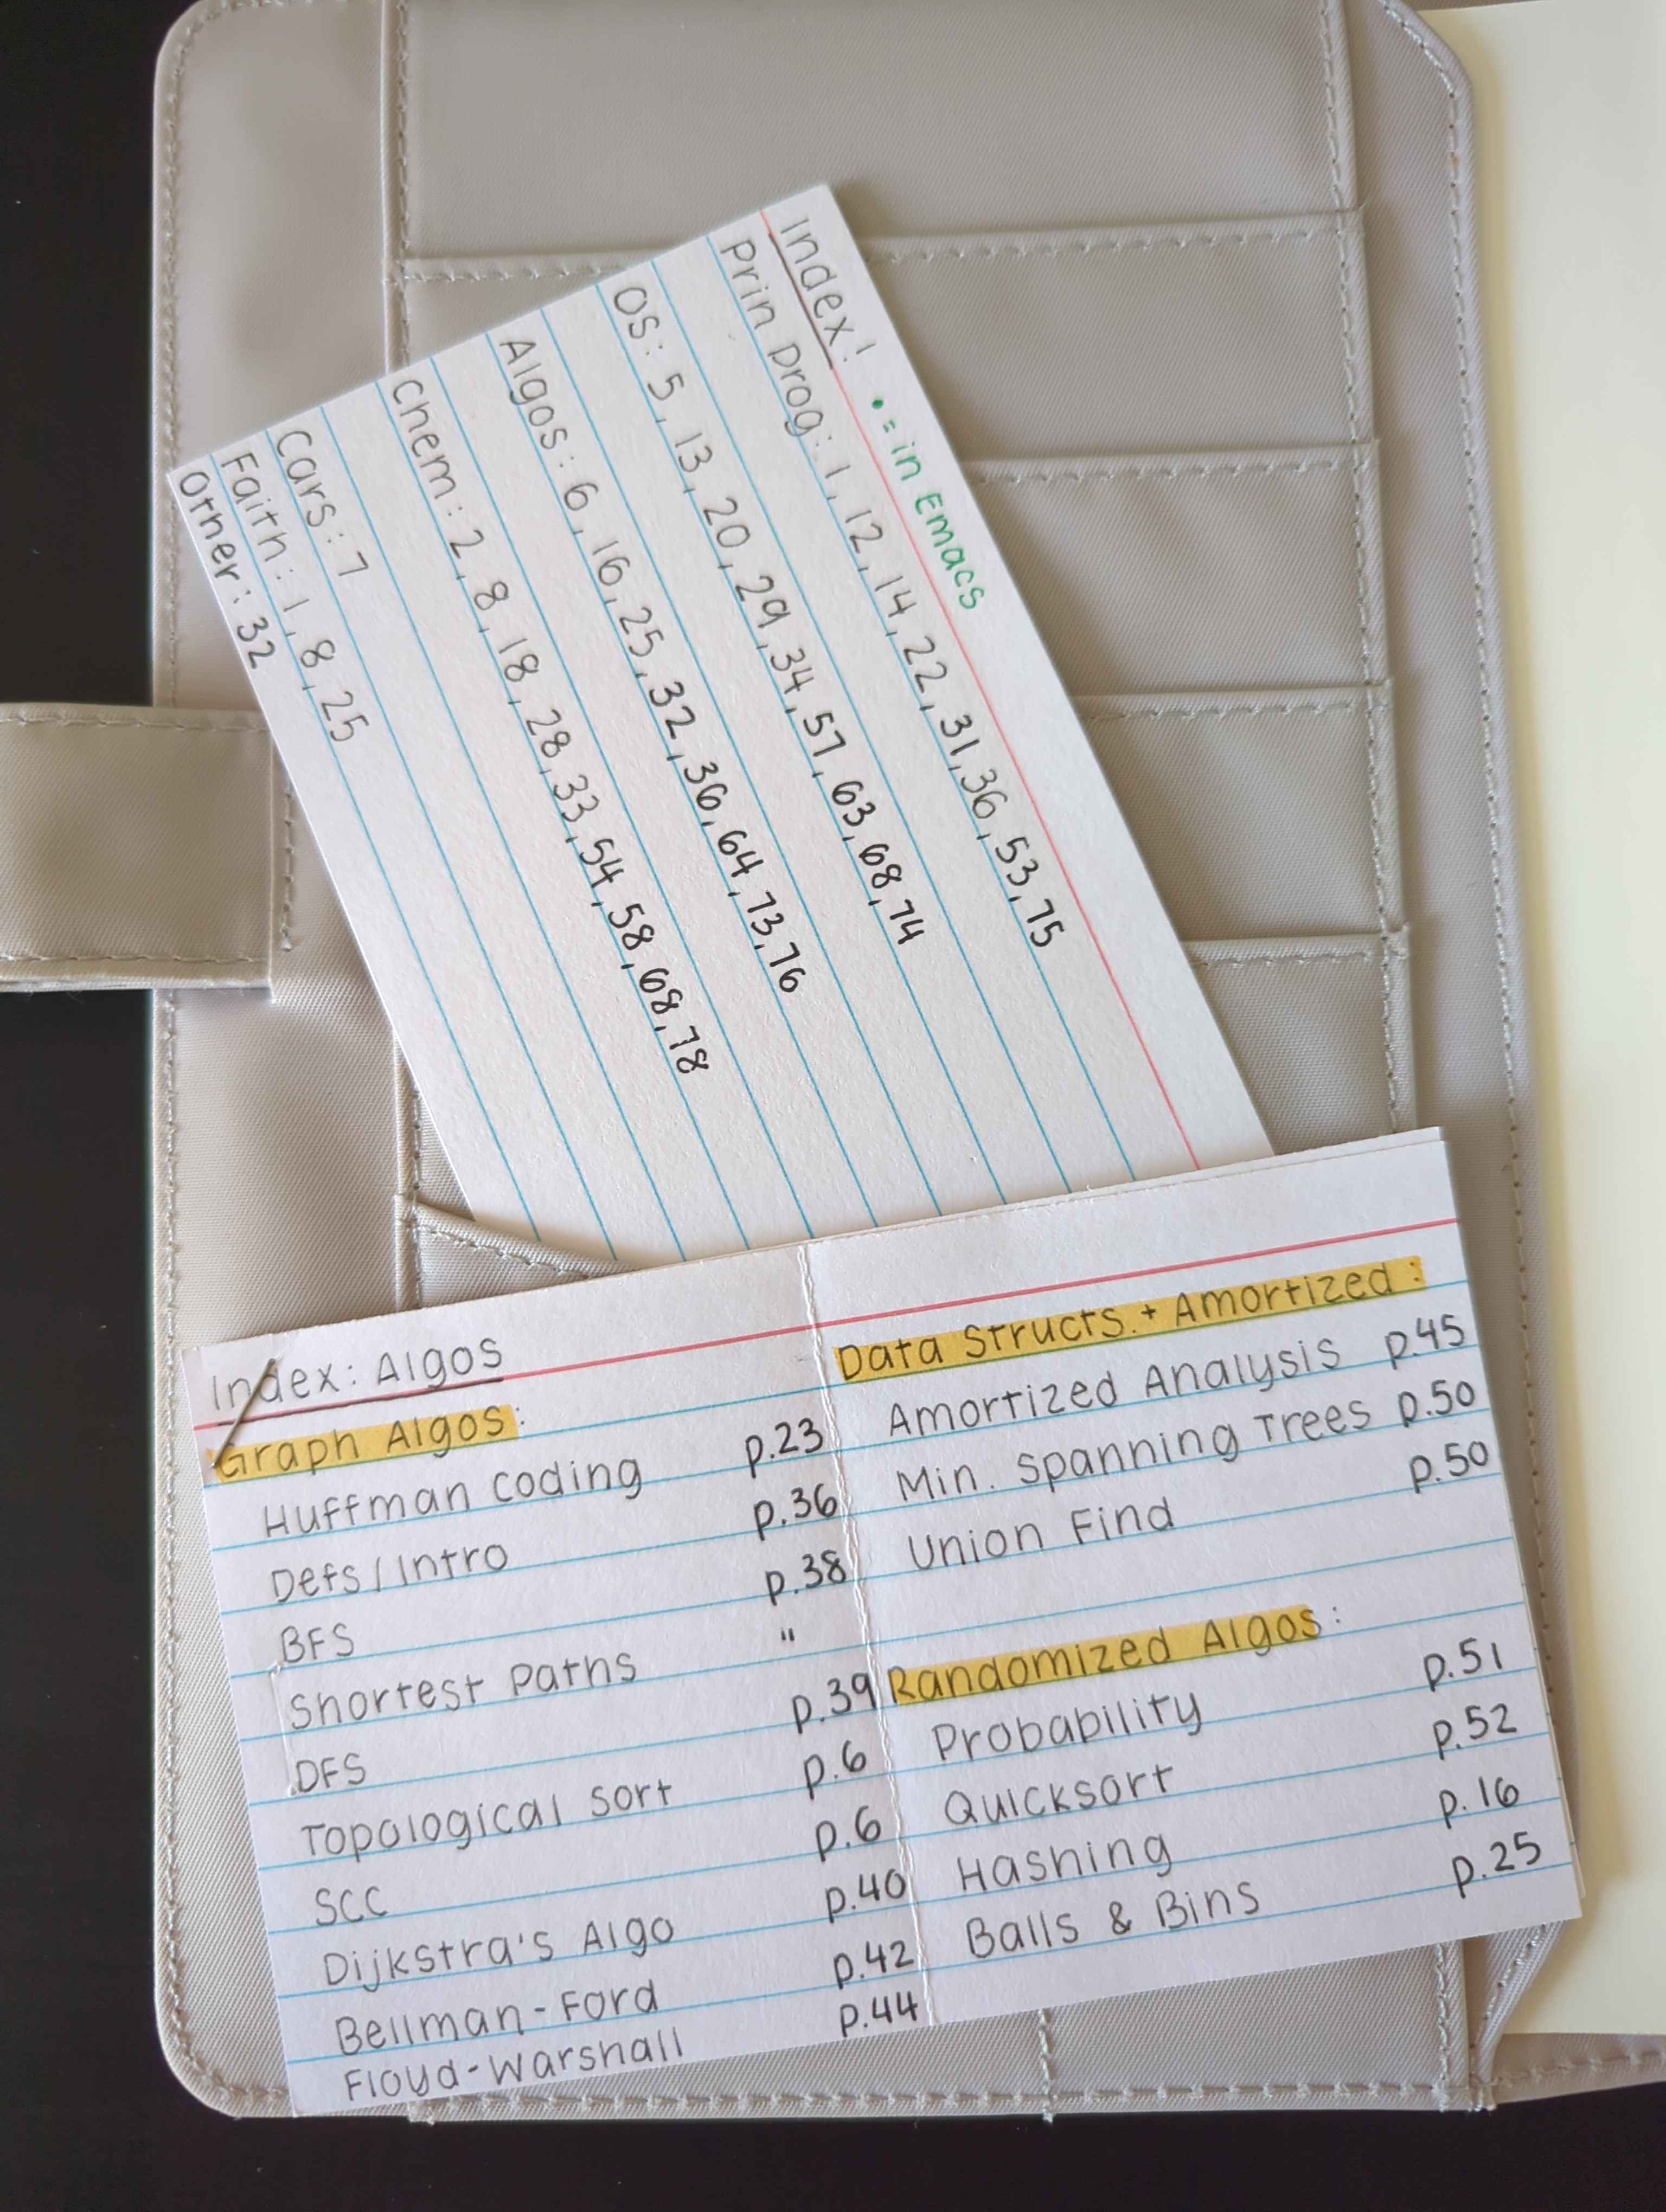 Index! • = in Emacs
Prin Prog: 1, 12, 14, 22, 31, 36, 53, 75
OS: 5, 13, 20, 29, 34, 57, 63, 68, 74
Algos: 6, 16, 25, 32, 36, 64, 73, 76
Chem: 2, 8, 18, 28, 33, 54, 58, 68, 78
Cars: 7
Faith: 1, 8, 25
Other: 32
Index: Algos
Graph Algos:
Huffman Coding p.23
Defs/Intro p.36
BFS p.38
Shortest Paths "
DFS p.39
Topological Sort p.6
SCC p.6
Dijkstra's Algo p.40
Bellman-Ford p.42
Floyd-Warshall p.44
Data Structs. + Amortized:
Amortized Analysis p.45
Min. Spanning Trees p.50
Union Find p.50
Randomized Algos:
Probability p.51
Quicksort p.52
Hashing p.16
Balls & Bins p.25